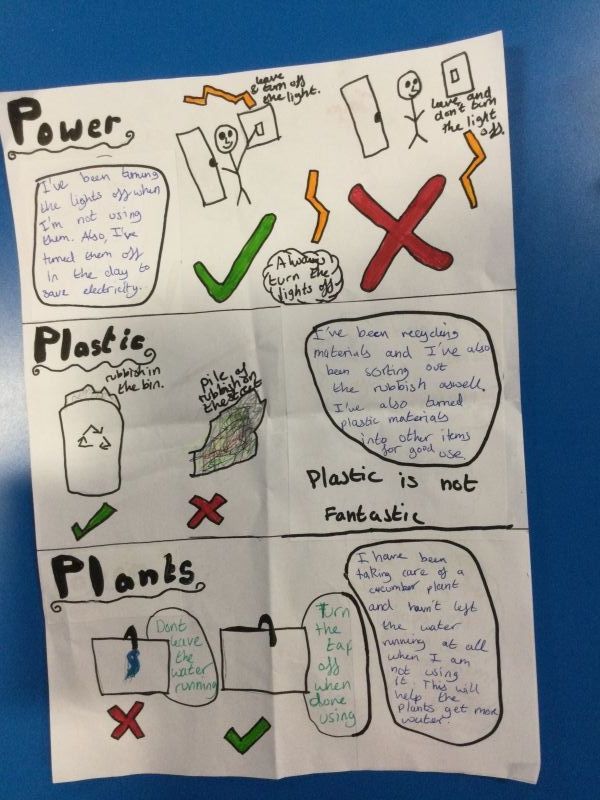 Power
leave
& turn off
the light.
leave and
don't turn
the light
off.
I've been turning
the lights off when
I'm not using
them. Also, I've
turned them off
in the day to
save electricity.
Always
turn the
lights off
Plastic
rubbish in
the bin.
pile of
rubbish on
the street
I've been recycling
materials and I've also
been sorting out
the rubbish aswell.
I've also turned
plastic materials
into other items
for good use
Plastic is not
Fantastic
Plants
Dont
leave
the
water
running
Turn
the
tap
off
when
done
using
I have been
taking care of a
cucumber plant
and havn't left
the water
running at all
when I am
not using
it. This will
help the
plants get more
water.